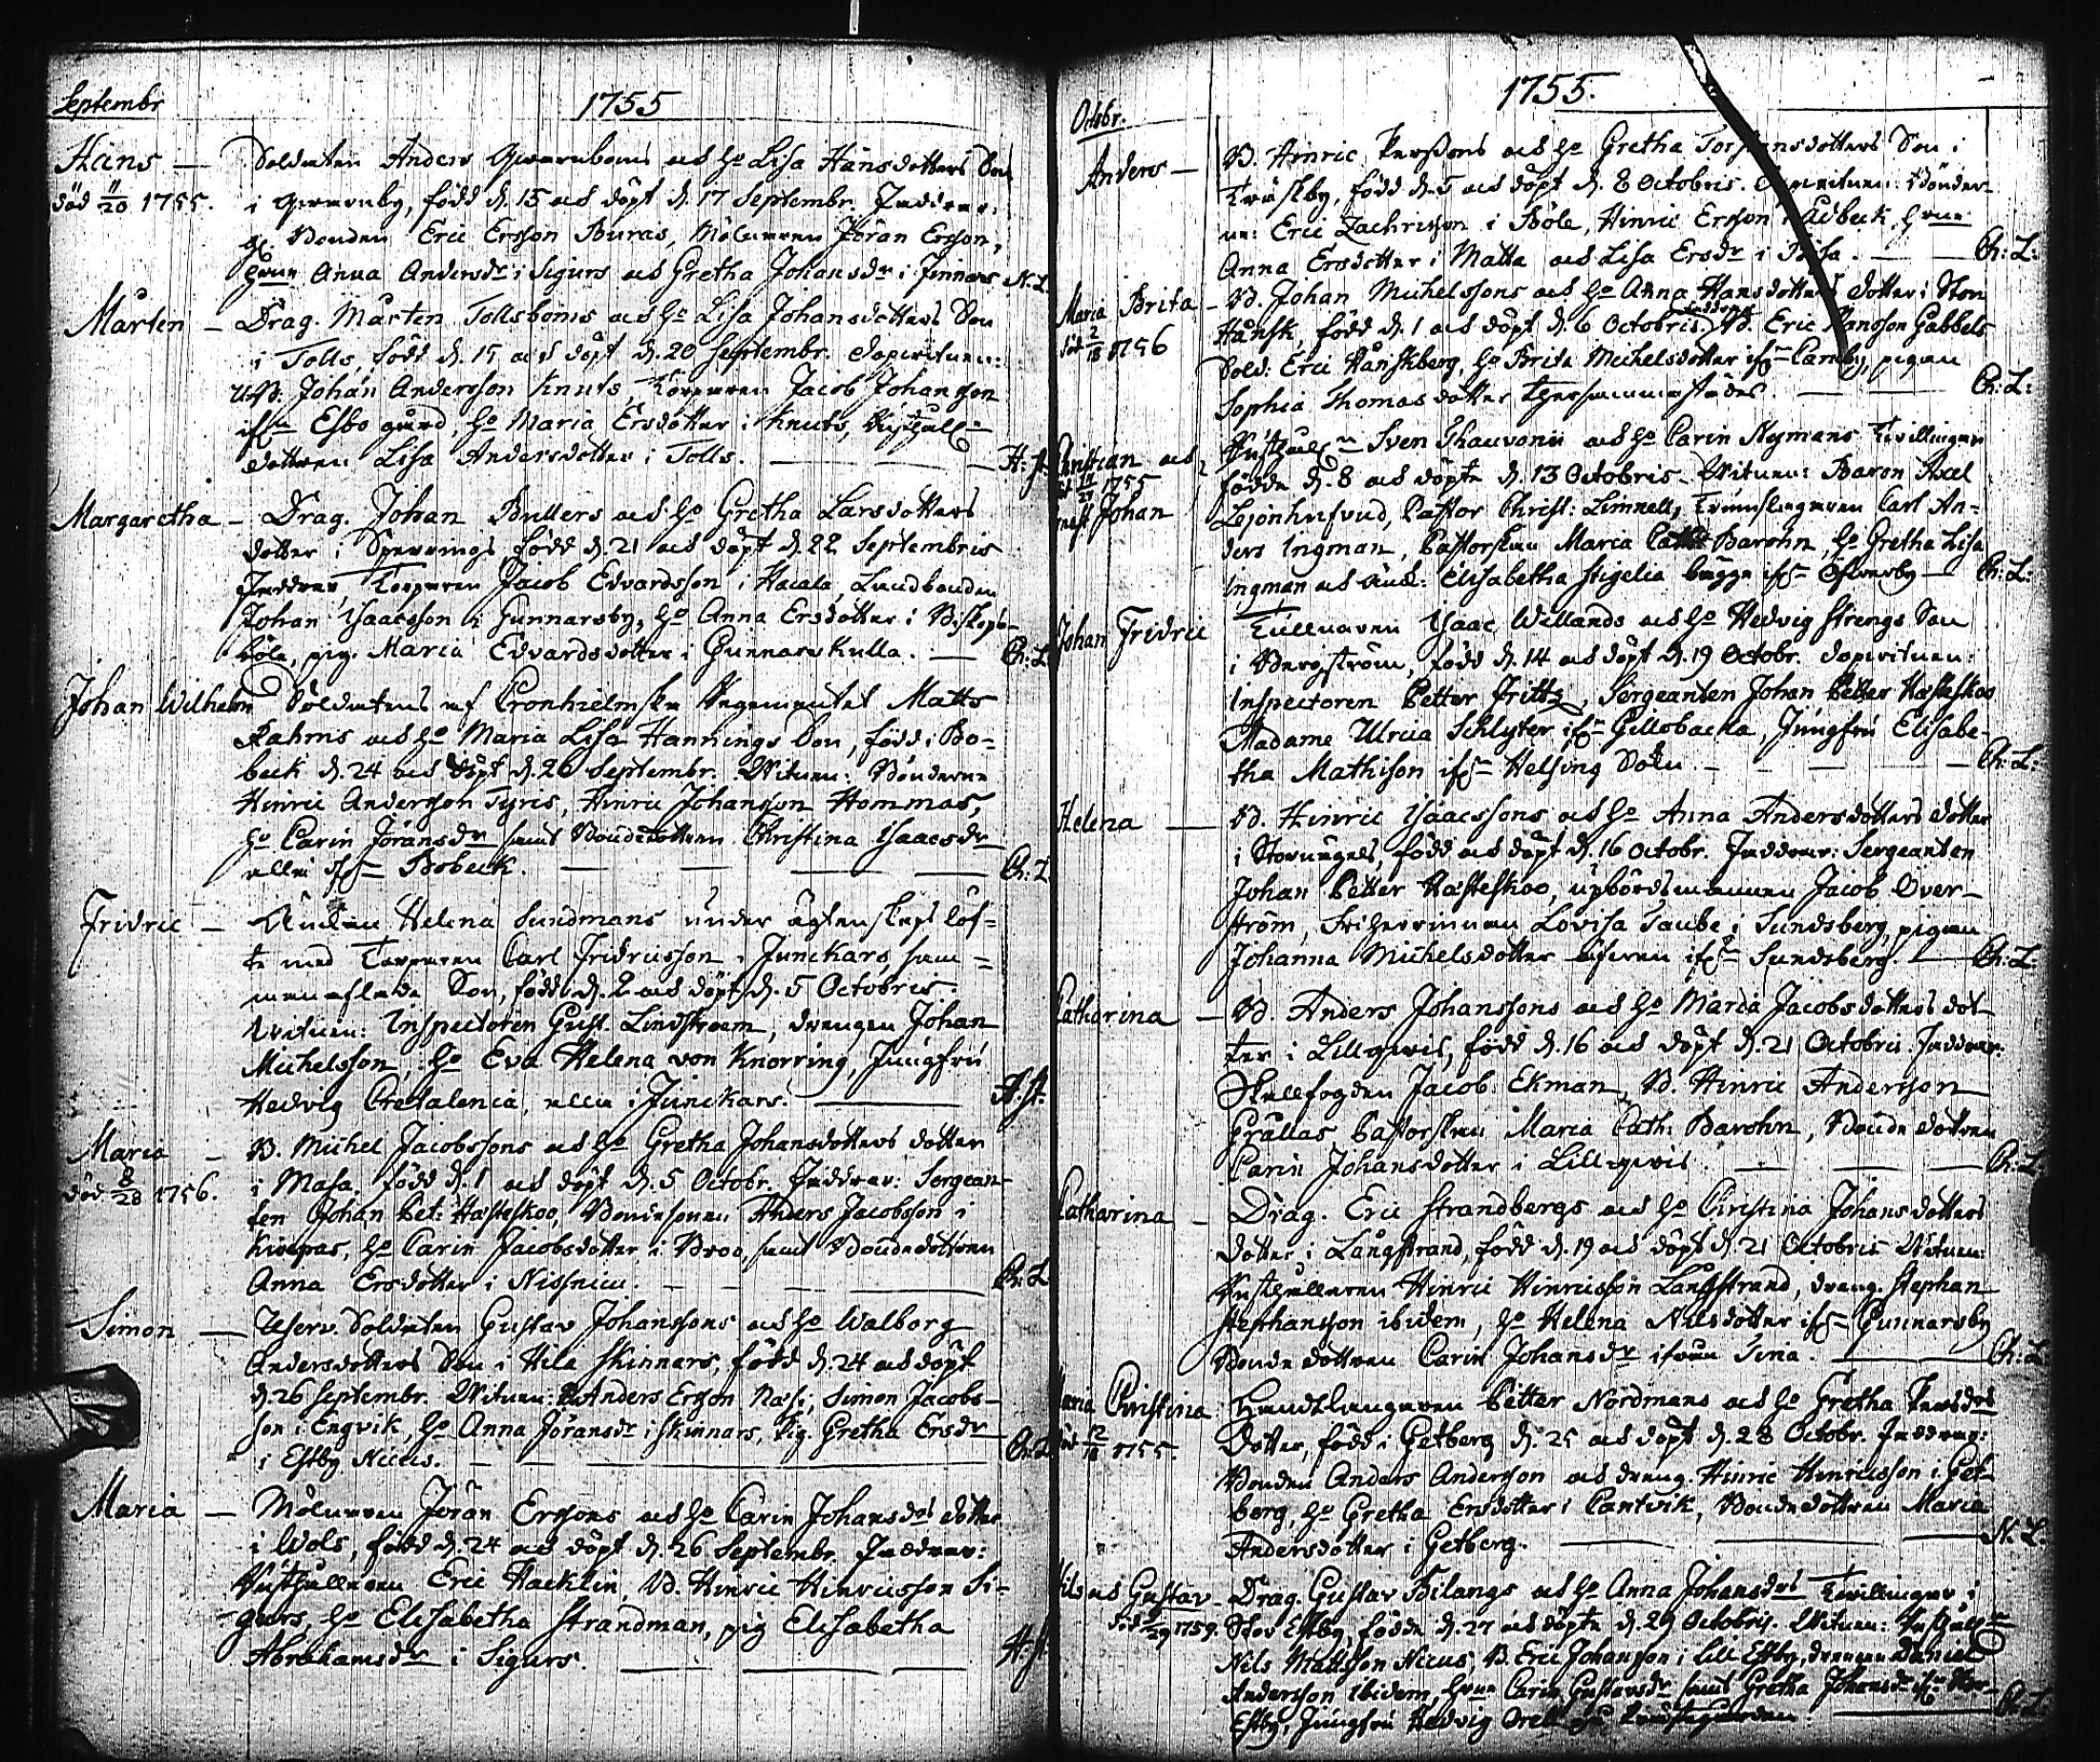 Septembr
1755
Hans — Soldaten Anders Qvarnboms och H:o Lisa Hansdotters Son
död 11/20 1755. i Qvarnby, född d. 15 och döpt d. 17 Septembr. Faddrar:
Bonden Eric Ersson Buras, Mölnaren Jöran Ersson,
Anna Andersdr i Sigurs och Gretha Johansdr i Finnars N. L.
Mårten — Drag. Mårten Tollsboms och H:o Lisa Johansdotters Son
i Tolls, född d. 15 och döpt d. 20 Septembr. Dopvitnen:
Johan Andersson Knuts, Torparen Jacob Johansson
Esbo gård, H:o Maria Ersdotter i Knuts,
dottren Lisa Andersdotter i Tolls. — H: A:
Margaretha — Drag. Johan Bullers och H:o Gretha Larsdotters
dotter i Sperrings född d. 21 och döpt d. 22 Septembris
Faddrar, Torparen Jacob Edvardsson i Hacala, Landbonden
Johan Isaacsson i Gunnarsby, H:o Anna Ersdotter i Biskops-
böle, pig. Maria Edvardsdotter i Gunnarskulla. — Ch: L
Johan Wilhelm Soldatens af Cronhielmska Regementet Matts
Rahms och H:o Maria Lisa Hannings Son, född i Bo-
beck d. 24 och döpt d. 26 Septembr. Vitnen: Bönderne
Hinric Andersson Tyris, Hinric Johansson Hommas,
H:o Carin Jöransdr samt Bondedottren Christina Isaacsdr
alla Bobeck. — Ch: L
Fridric — Helena Sundmans under ägtenskaps löf-
te med Torparen Carl Fridricsson i Junckars sam-
manaflade Son, född d. 2 och döpt d. 5 Octobris.
Vitnen: Inspectoren Gust. Lindstroem, drengen Johan
Michelsson, H:o Eva Helena von Knorring, Jungfru
Hedvig Cretalenia, alla i Junckars. — H: A:
Maria — B. Michel Jacobssons och H:o Gretha Johansdotters dotter
död 8/28 1756. i Masa, född d. 1 och döpt d. 5 Octobr. Faddrar: Sergean-
ten Johan Pet: Hästeskoo, Bondesonen Anders Jacobsson i
H:o Carin Jacobsdotter i Broo, samt Bondedottren
Anna Ersdotter i Nissnicu. — Ch: L
Simon — Reserv. Soldaten Gustav Johanssons och H:o Walborg
Andersdotters Son i Hila Skinnars, född d. 24 och döpt
d. 26 Septembr. Vitnen: Anders Ersson Näs, Simon Jacobs-
son i Engvik, H:o Anna Jöransdr i Skinnars, Pig. Gretha Ersdr
i Estby Nicus. — Ch: L
Maria — Mölnaren Jöran Erssons och H:o Carin Johansdrs dotter
i Wols, född d. 24 och döpt d. 26 Septembr. Faddrar:
Rusthållaren Eric Hacklin, B. Hinric Hinricsson Si-
gurs, H:o Elisabetha Strandman, pig Elisabetha
Abrahamsdr i Sigurs. — H: A:
1755.
Octobr.
Anders — B. Hinric Perssons och H:o Gretha Torstensdotters Son i
Träskby, född d. 5 och döpt d. 8 Octobris. Dopvitnen: Bönder-
ne: Eric Zachrisson i Böle, Hinric Ersson i
Anna Ersdotter i Matta och Lisa Ersdr i — Ch: L:
Maria Brita — B. Johan Michelssons och H:o Anna Hansdotters dotter i Stor
död 2/18 1756 Hånsk, född d. 1 och döpt d. 6 Octobris. Faddrar B. Eric Hansson Gabbels
Sold: Eric Hånskberg, H:o Brita Michelsdotter pigan
Sophia Thomasdotter thersammastädes. — Ch: L:
Christian och Sven Thauvonii och H:o Carin Nymans Tvillingar
1755 födde d. 8 och döpte d. 13 Octobris. Vitnen: Baron Axel
Johan Lejonhufvud, Pastor Christ: Limnell, Carl An-
ders Ingman, Pastorskan Maria Barohn, H:o Gretha Lisa
Ingman och Elisabetha Stigelia begge — Ch: L:
Johan Fridric Isaac Willands och H:o Hedvig Strengs Son
i Bergström, född d. 14 och döpt d. 19 Octobr. Dopvitnen:
Inspectoren Petter Frittz, Sergeanten Johan Petter Hästeskoo
Madame Ulrica Schlyter Gillobacka, Jungfru Elisabe-
tha Mathison Helsing — Ch: L:
Helena — B. Hinric Isaacssons och H:o Anna Andersdotters dotter
i född och döpt d. 16 Octobr. Faddrar: Sergeanten
Johan Petter Hästeskoo, upbördsmannen Jacob Över-
ström, Friherrinnan Lovisa Taube i Sundsberg, pigan
Johanna Michelsdotter Sundsberg. — Ch: L:
Catharina — B. Anders Johanssons och H:o Maria Jacobsdotters dot-
ter i född d. 16 och döpt d. 21 Octobris. Faddrar:
Jacob Ekman, B. Hinric Andersson
Grällas, Pastorskan Maria Cath: Barohn, Bondedottren
Carin Johansdotter i — Ch: L
Catharina — Drag. Eric Strandbergs och H:o Christina Johansdotters
dotter i Långstrand, född d. 19 och döpt d. 21 Octobris. Vitnen:
Rusthållaren Hinric Hinricsson Långstrand, dreng. Stephan
Stephansson ibidem, H:o Helena Nilsdotter Gunnarsby
Bondedottren Carin Johansdr — Ch: L
Maria Christina Handtlangaren Petter Nordmans och H:o Gretha Persdrs
12/18 1755. Dotter, född i Getberg d. 25 och döpt d. 28 Octobr. Faddrar:
Bonden Anders Andersson och dreng. Hinric Hinricsson i Get-
berg, H:o Gretha Ersdotter i Cantvik, Bondedottren Maria
Andersdotter i Getberg. — N: L.
Nils och Gustav Drag. Gustav Bilangs och H:o Anna Johansdrs Tvillingar i
1759. Stor Estby, födde d. 27 och döpte d. 29 Octobris. Vitnen:
Nils Mattsson Nicus, B. Eric Johansson i Lill Estby, drengen Daniel
Andersson ibidem, Carin Gustavsdr samt Gretha Johansdr Stor-
Estby, Jungfru Hedvig — Ch: L